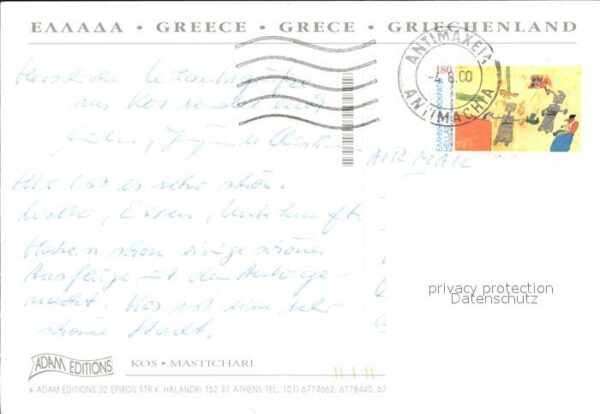 ΕΛΛΑΔΑ • GREECE • GRECE • GRIECHENLAND
ΑΝΤΙΜΑΧΕΙΑ
-4.8.00
ANTIMACHIA
180
ΕΛΛΗΝΙΚΗ ΔΗΜΟΚΡΑΤΙΑ
HELLAS
Herzliche Urlaubsgrüße
aus Kos sendet euch
AIR MAIL
Hier ist es sehr schön.
Wetter, Essen, Unterkunft.
Haben schon einige schöne
Ausflüge mit dem Auto ge-
macht. Kos ist eine sehr
schöne Stadt.
privacy protection
Datenschutz
ADAM EDITIONS
KOS • MASTICHARI
ADAM EDITIONS 32 EPIROU STR K. HALANDRI 152 31 ATHENS TEL.: (01) 6774660, 6778440, 67